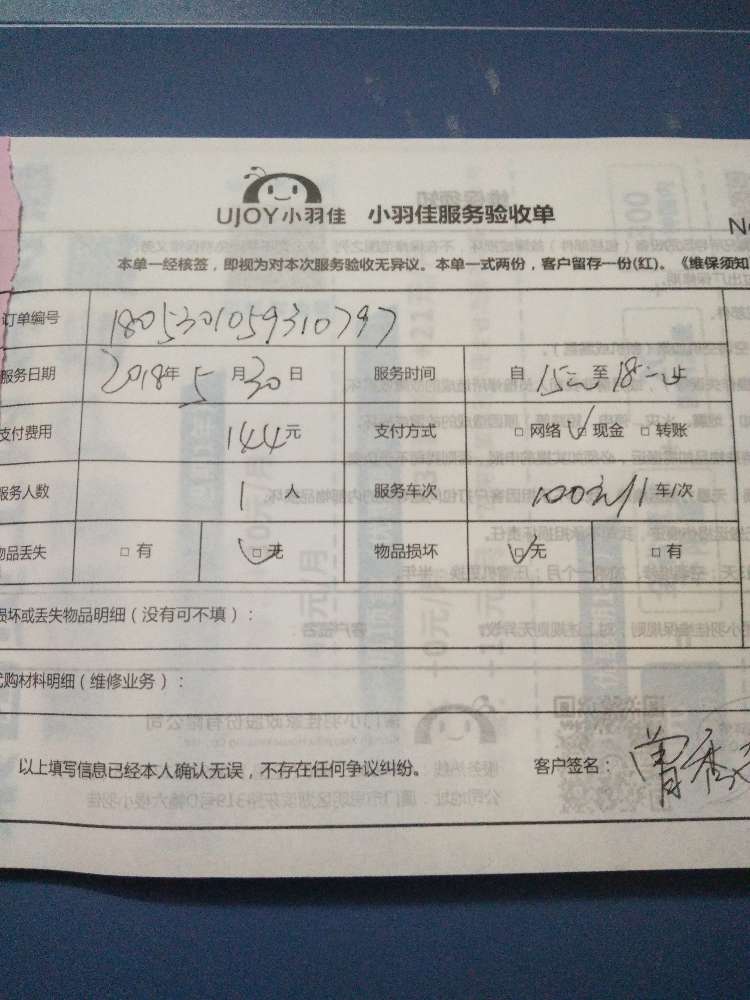 UJOY小羽佳 小羽佳服务验收单
No
本单一经核签，即视为对本次服务验收无异议。本单一式两份，客户留存一份(红)。《维保须知
订单编号 1805301059310797
服务日期 2018年5月30日 服务时间 自15:00至18:00止
支付费用 144元 支付方式 □网络 ☑现金 □转账
服务人数 1人 服务车次 车/次
物品丢失 □有 ☑无 物品损坏 ☑无 □有
损坏或丢失物品明细（没有可不填）：
代购材料明细（维修业务）：
以上填写信息已经本人确认无误，不存在任何争议纠纷。 客户签名：曾秀